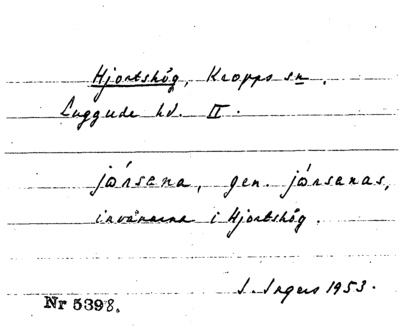 Hjortshög, Kropps sn.
Luggude hd. II.
jørsena, gen. jørsenas,
invånarna i Hjortshög.
I. Ingers 1953.
Nr 5398.